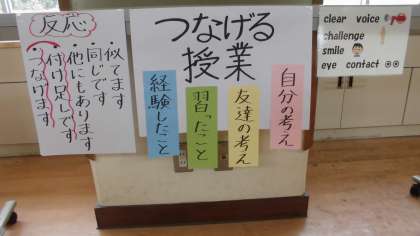 反応
・似てます
・同じです
・他にもあります
・付け足しです
・つなげます
つなげる
授業
自分の考え
友達の考え
習ったこと
経験したこと
clear voice
challenge
smile
eye contact